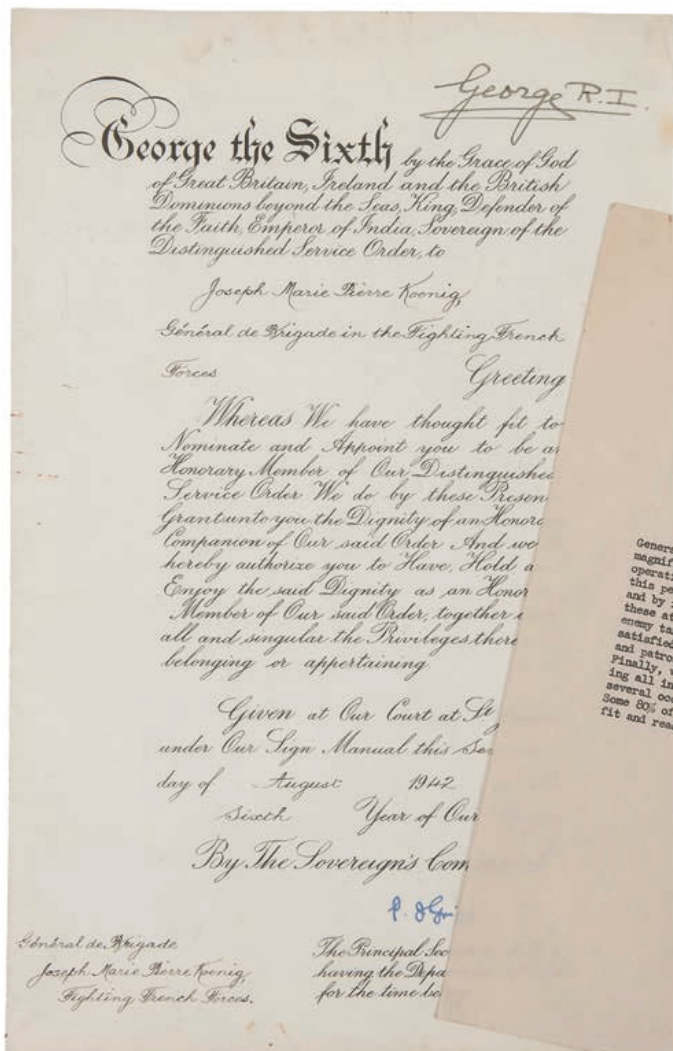 George R.I.
George the Sixth by the Grace of God
of Great Britain, Ireland and the British
Dominions beyond the Seas, King, Defender of
the Faith, Emperor of India, Sovereign of the
Distinguished Service Order, to
Joseph Marie Pierre Koenig,
Général de Brigade in the Fighting French
Forces Greeting
Whereas We have thought fit to
Nominate and Appoint you to be a
Honorary Member of Our Distinguished
Service Order We do by these Presen
Grant unto you the Dignity of an Honor
Companion of Our said Order And we
hereby authorize you to Have, Hold a
Enjoy the said Dignity as an Honor
Member of Our said Order, together
all and singular the Privileges there
belonging or appertaining
Given at Our Court at St
under Our Sign Manual this Se
day of August 1942
Sixth Year of Our
By The Sovereign's Com
Général de Brigade
Joseph Marie Pierre Koenig,
Fighting French Forces.
The Principal Sec
having the Depa
for the time be
Genera
magnif
operati
this pe
and by
these at
enemy ta
satisfied
and patro
Finally, w
ing all in
several occ
Some 80% of
fit and rea